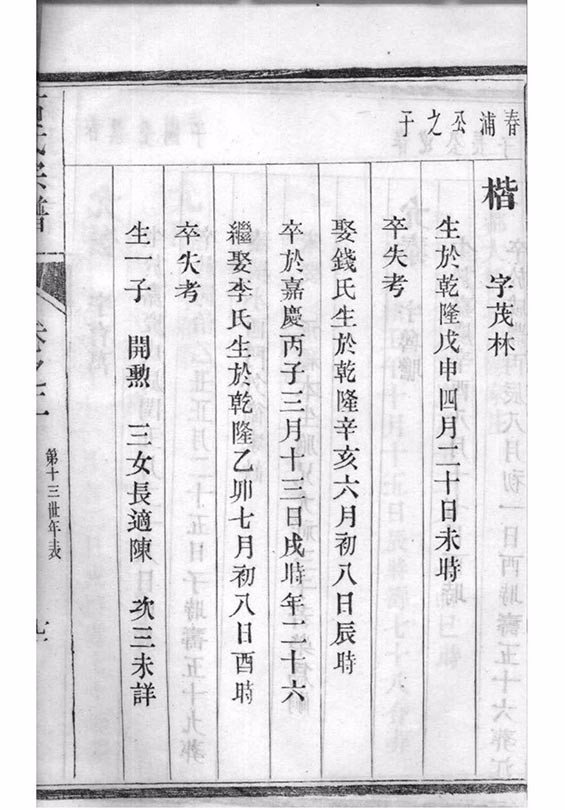 春浦公之子
楷 字茂林
生於乾隆戊申四月二十日未時
卒失考
娶錢氏生於乾隆辛亥六月初八日辰時
卒於嘉慶丙子三月十三日戌時年二十六
繼娶李氏生於乾隆乙卯七月初八日酉時
卒失考
生一子 開勲 三女長適陳 次三未詳
氏宗譜
卷之二
第十三世年表
九